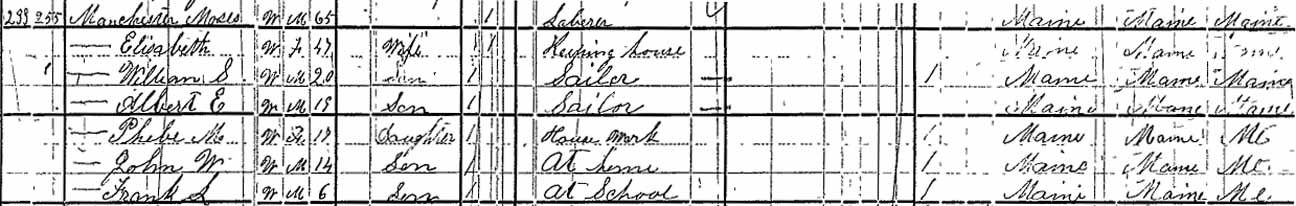 239 255 Manchester Moses W M 65 1 Laborer 4 Maine Maine Maine
— Elisabeth W F 47 Wife 1 Keeping house Maine Maine Maine
— William S. W M 20 Son 1 Sailor — 1 Maine Maine Maine
— Albert E W M 19 Son 1 Sailor — Maine Maine Maine
— Phebe M. W F 17 Daughter 1 House Work 1 Maine Maine Me
— John W. W M 14 Son 1 At home 1 Maine Maine Me.
— Frank S W M 6 Son 1 At School 1 Maine Maine Me.